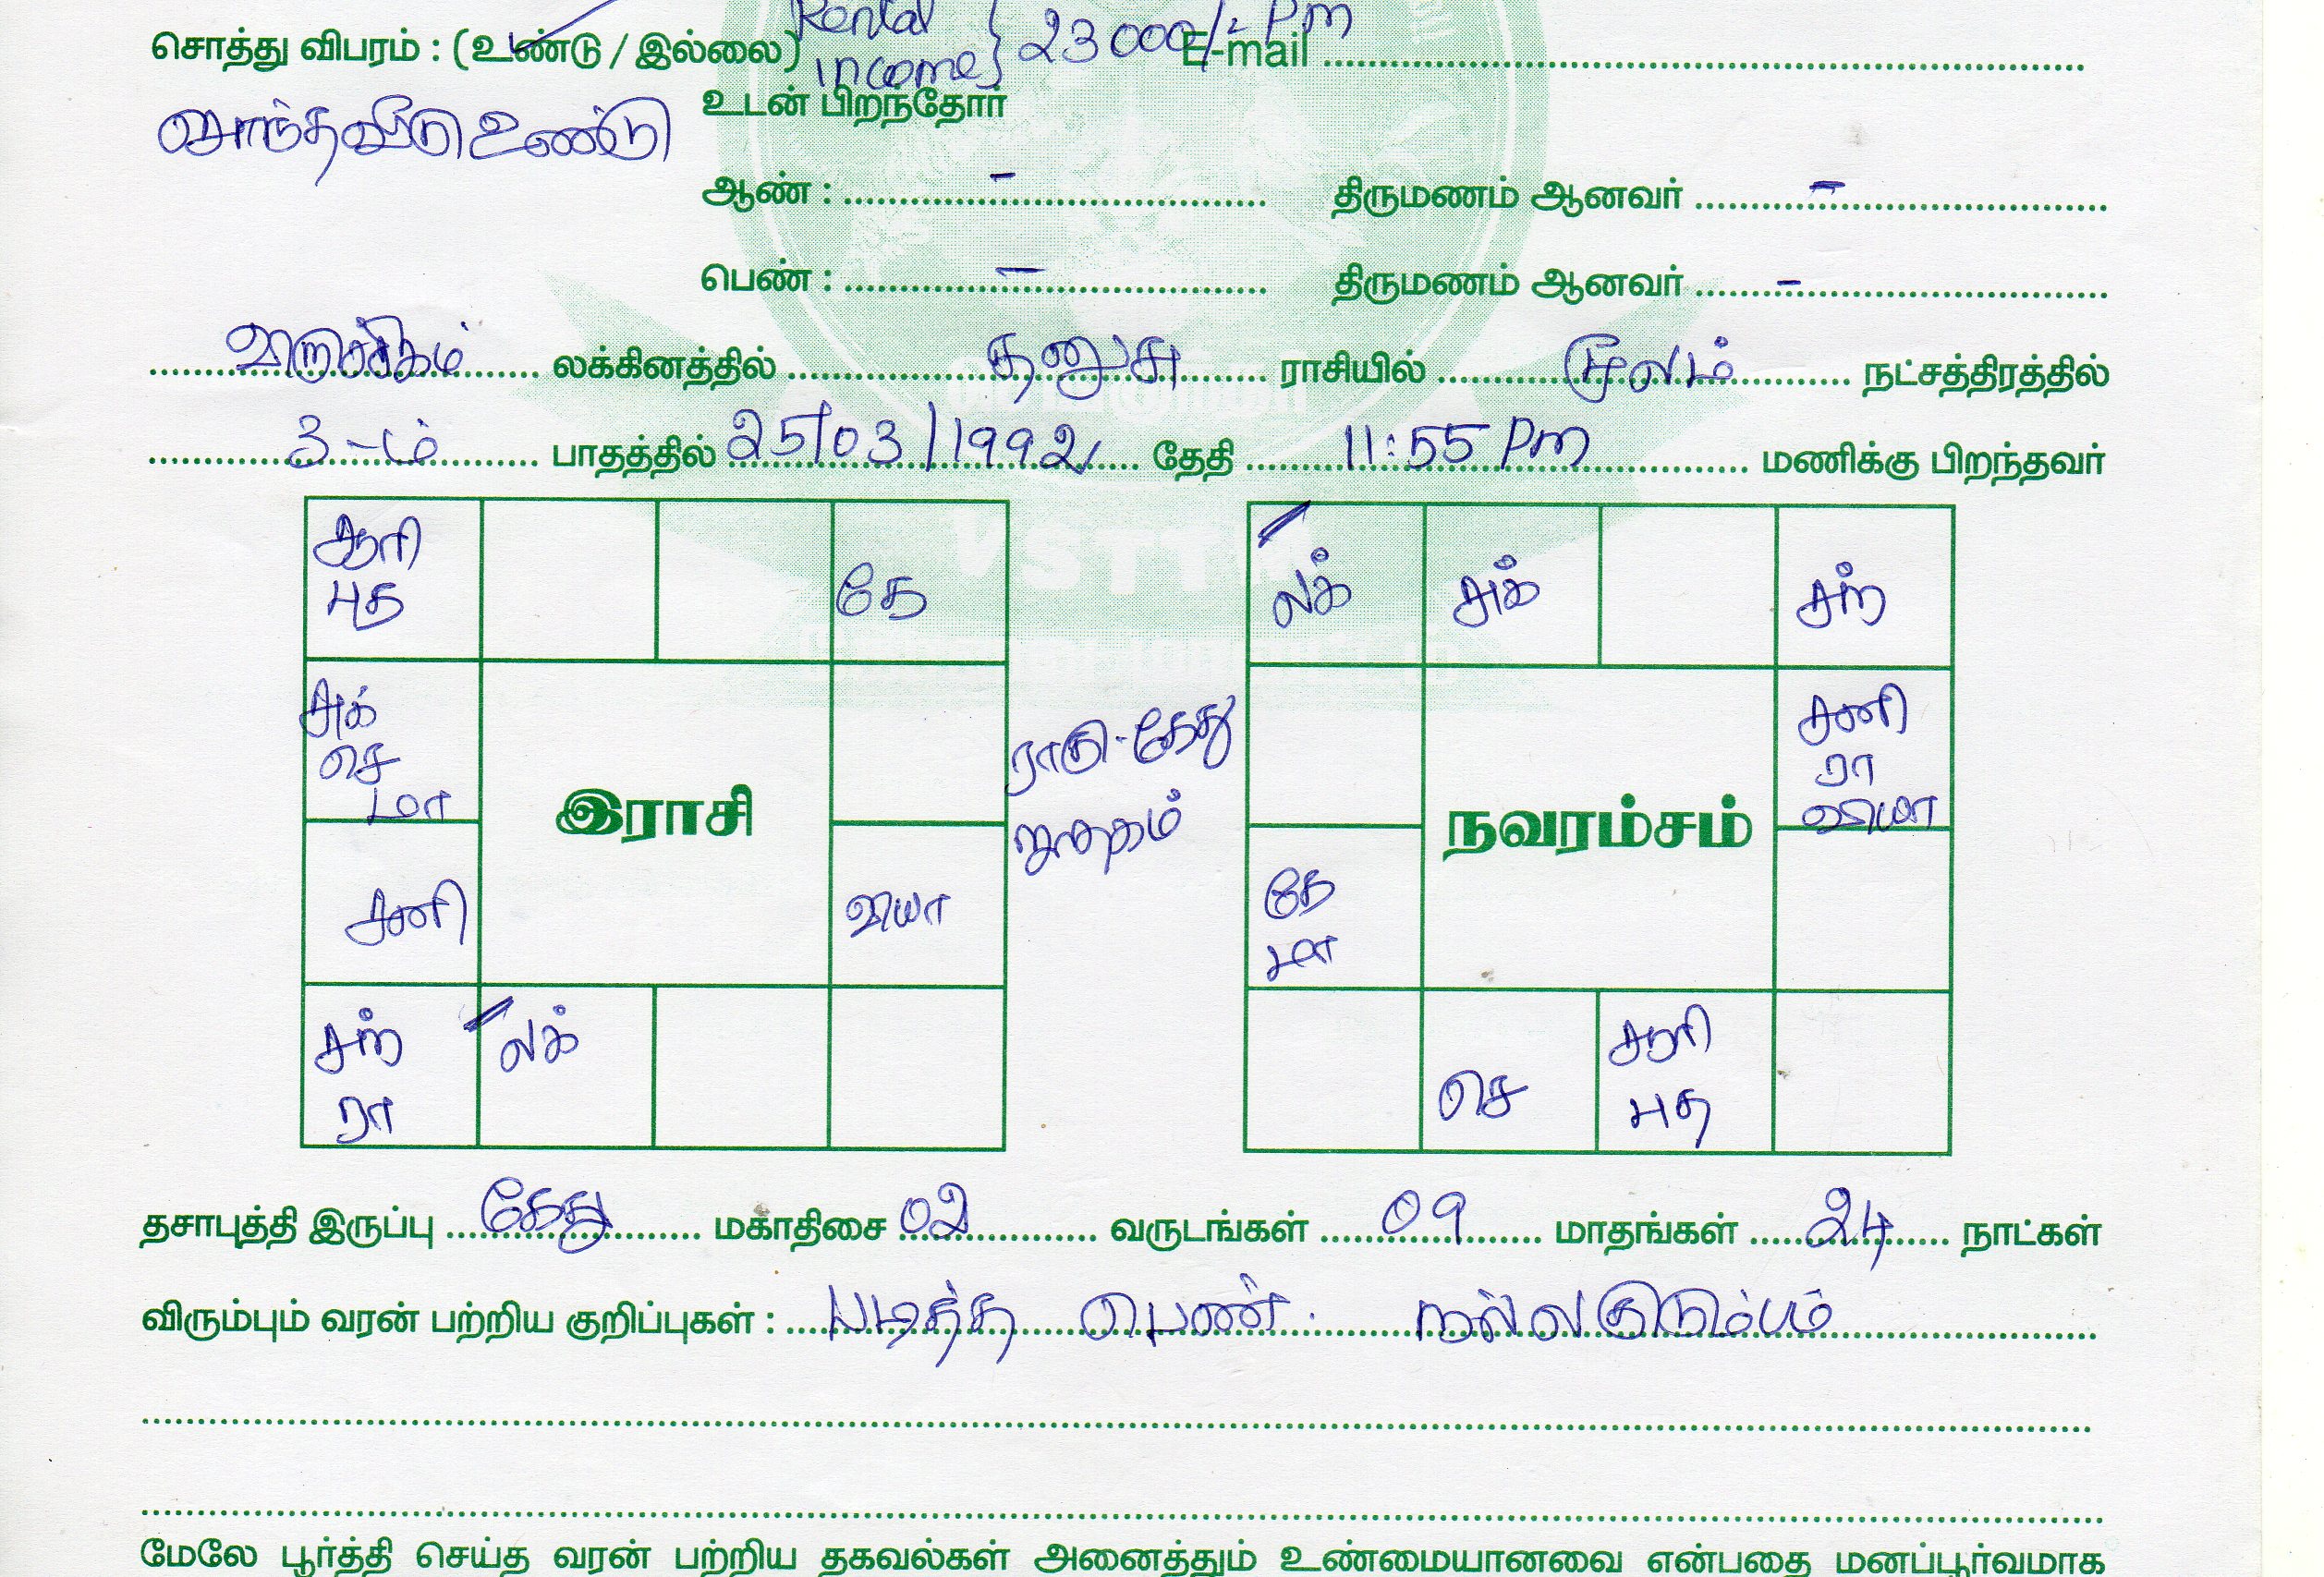 சொத்து விபரம் : (உண்டு / இல்லை) Rental income } 23000/- Pm E-mail
சொந்த வீடு உண்டு உடன் பிறந்தோர்
ஆண் : - திருமணம் ஆனவர் -
பெண் : - திருமணம் ஆனவர் -
விருச்சிகம் லக்கினத்தில் தனுசு ராசியில் மூலம் நட்சத்திரத்தில்
3-ம் பாதத்தில் 25/03/1992 தேதி 11:55 Pm மணிக்கு பிறந்தவர்
சூரி
புத
கே
சுக்
செ
மா
இராசி
சனி
வியா
சந்
ரா
லக்
ராகு-கேது
ஜாதகம்
லக்
சுக்
சந்
சனி
ரா
வியா
நவரம்சம்
கே
மா
செ
சூரி
புத
தசாபுத்தி இருப்பு கேது மகாதிசை 02 வருடங்கள் 09 மாதங்கள் 24 நாட்கள்
விரும்பும் வரன் பற்றிய குறிப்புகள் : படித்த பெண். நல்ல குடும்பம்
மேலே பூர்த்தி செய்த வரன் பற்றிய தகவல்கள் அனைத்தும் உண்மையானவை என்பதை மனப்பூர்வமாக